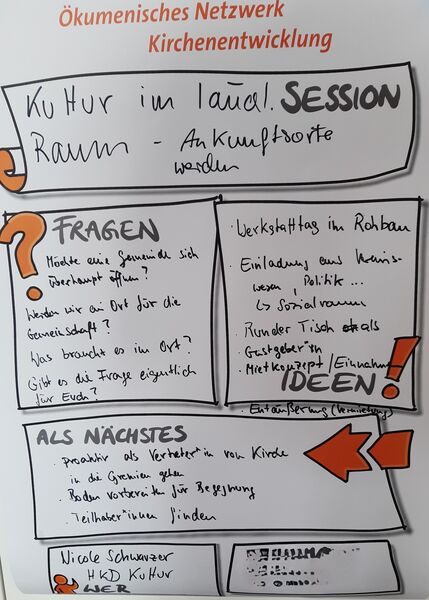 Ökumenisches Netzwerk
Kirchenentwicklung
Kultur im ländl. SESSION
Raum - Ankunftsorte
werden
FRAGEN
Möchte eine Gemeinde sich
überhaupt öffnen?
Werden wir ein Ort für die
Gemeinschaft?
Was braucht es im Ort?
Gibt es die Frage eigentlich
für Euch?
· Werkstatttag im Rohbau
· Einladung aus
wesen, Politik ...
↳ Sozialraum
· Runder Tisch als
· Gastgeber*in
· Mietkonzept/Einnahm
IDEEN!
· Entäußerung (Vermietung)
ALS NÄCHSTES
· proaktiv als Vertreter*in von Kirche
in die Gremien gehen
· Boden vorbereiten für Begegnung
· Teilhaber*innen finden
Nicole Schwarzer
HKD Kultur
WER